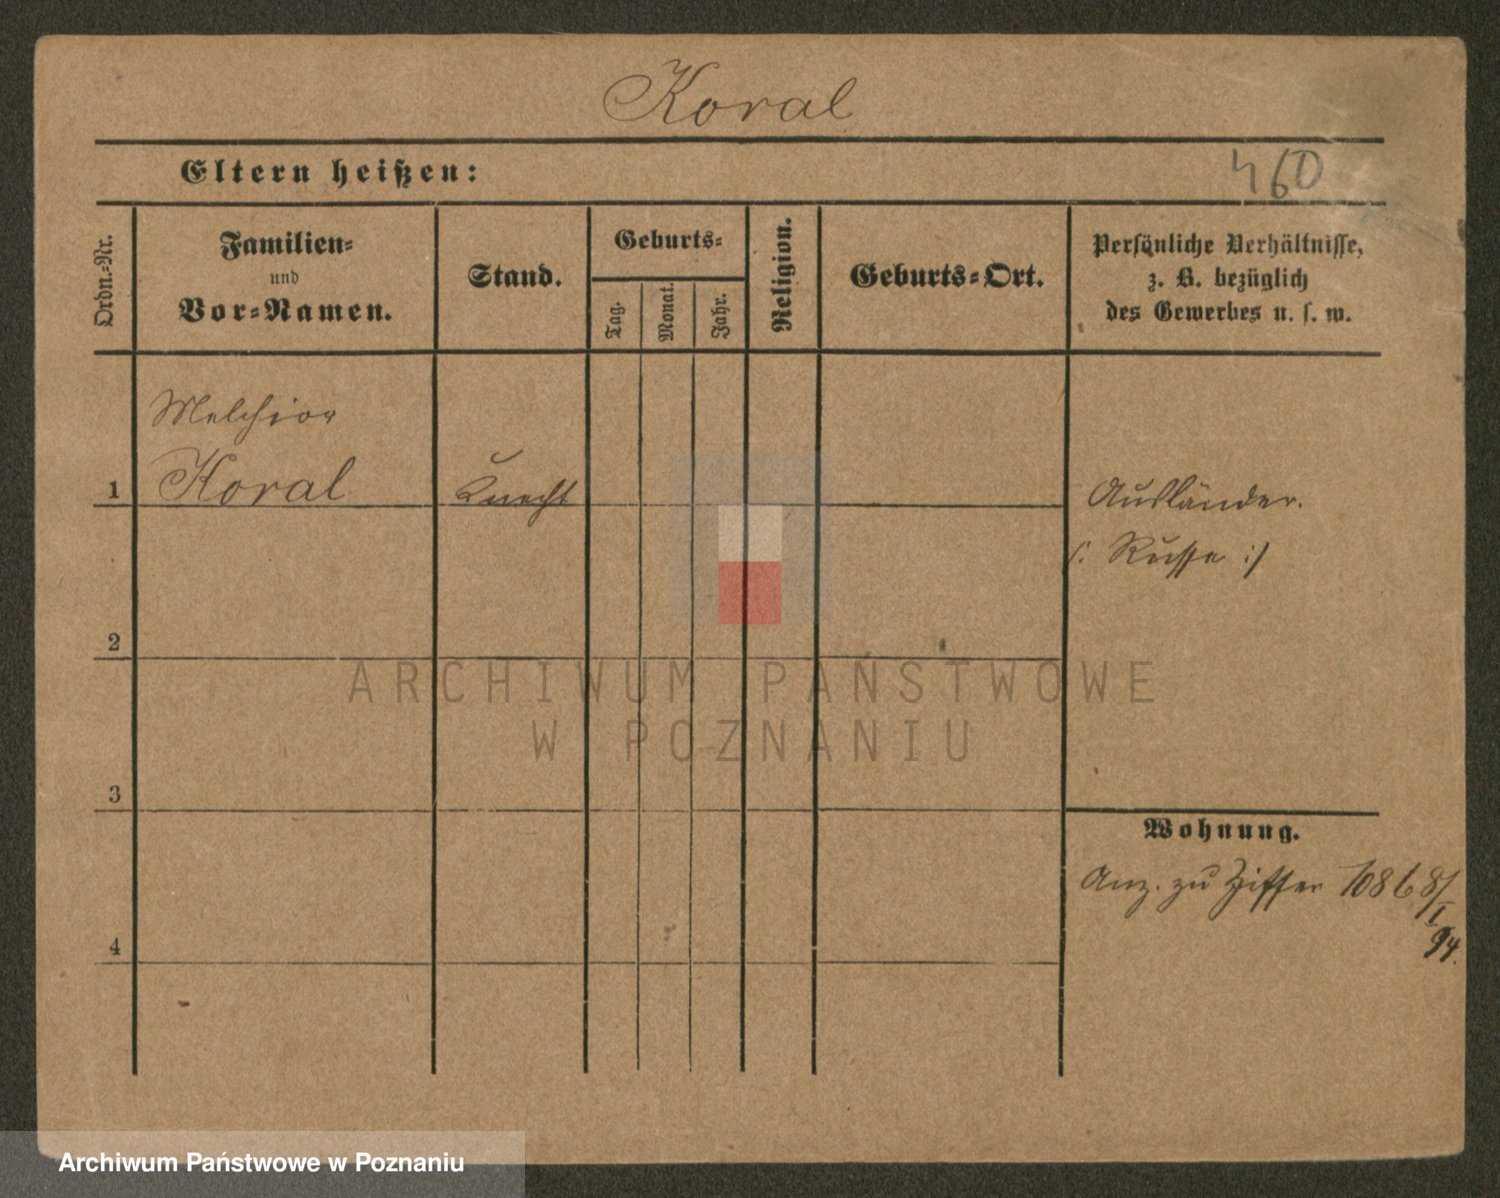 Koral
Eltern heißen:
460
Ordn.=Nr.
Familien=
und
Vor=Namen.
Stand.
Geburts=
Tag.
Monat.
Jahr.
Religion.
Geburts=Ort.
Persönliche Verhältnisse,
z. B. bezüglich
des Gewerbes u. s. w.
Melchior
1 Koral Knecht Ausländer.
/: Russe :/
2
ARCHIWUM PAŃSTWOWE
W POZNANIU
3
Wohnung.
Anz. zu Ziffer 1086 8/
I
94.
4
Archiwum Państwowe w Poznaniu